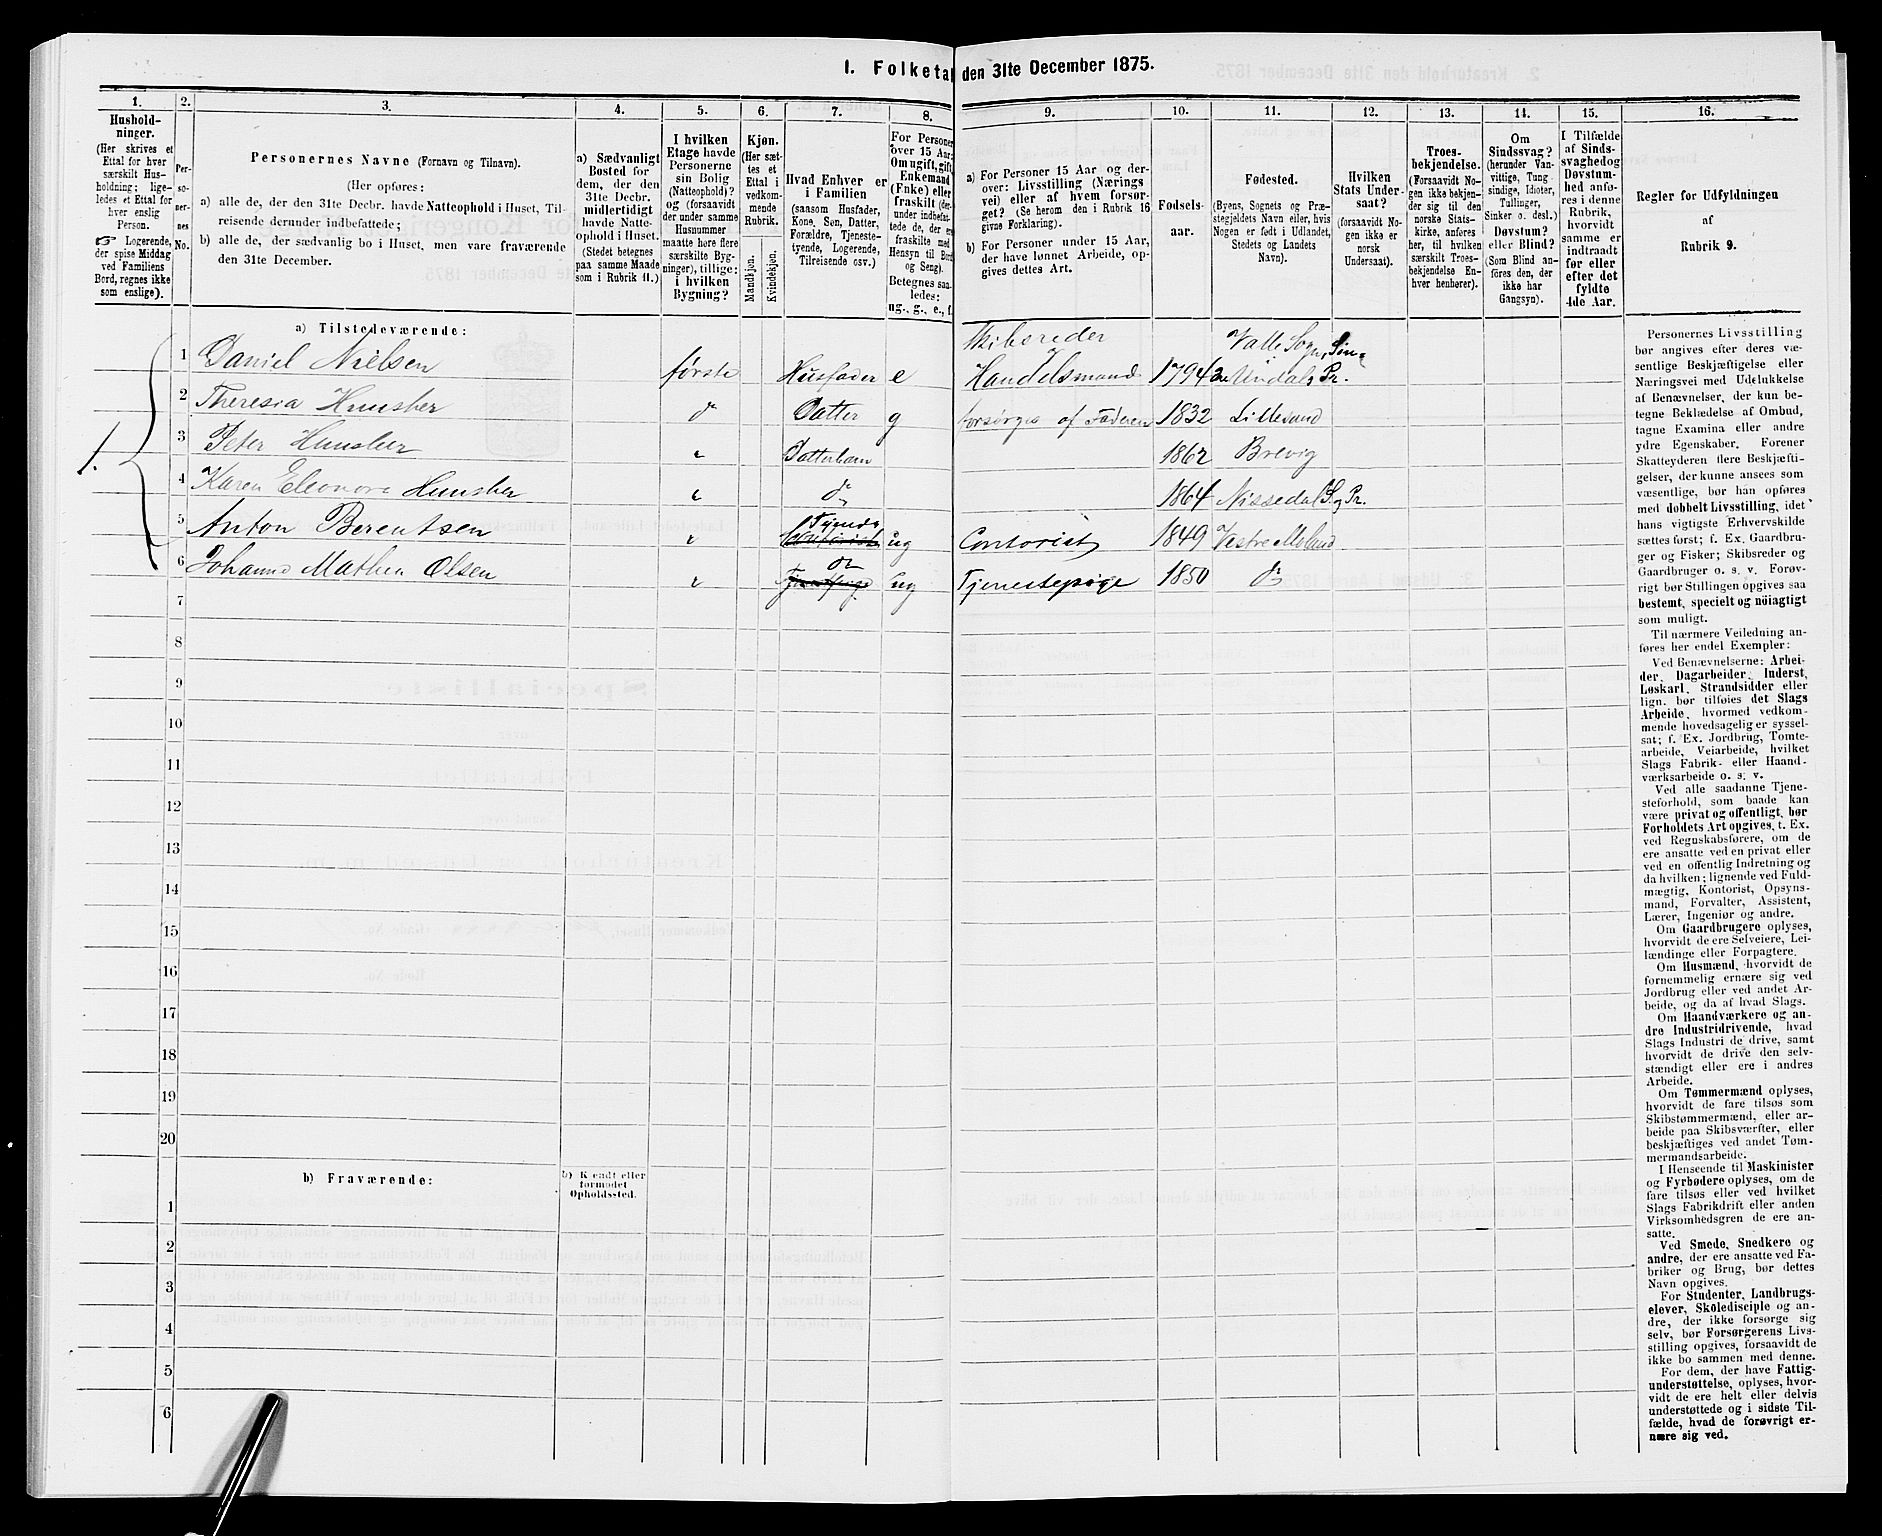 1. Folketal den 31te December 1875.
1. 2. 3. 4. 5. 6. 7. 8. 9. 10. 11. 12. 13. 14. 15. 16.
Hushold-
ninger.
(Her skrives et
Ettal for hver
særskilt Hus-
holdning; lige-
ledes et Ettal
for hver enslig
Person.
☞ Logerende,
der spise Middag
ved Familiens
Bord, regnes ikke
som enslige).
Per-
so-
ner-
nes
No.
Personernes Navne (Fornavn og Tilnavn).
(Her opføres:
a) alle de, der den 31te Decbr. havde Natteophold i Huset, Til-
reisende derunder indbefattede;
b) alle de, der sædvanlig bo i Huset, men vare fraværende
den 31te December.
a) Sædvanligt
Bosted for
dem, der den
31te Decbr.
midlertidigt
havde Natte-
ophold i Huset.
(Stedet betegnes
paa samme Maade
som i Rubrik 11.)
I hvilken
Etage havde
Personerne
sin Bolig
(Natteophold)?
og (forsaavidt
der under samme
Husnummer
maatte høre flere
særskilte Byg-
ninger), tillige:
i hvilken
Bygning?
Kjøn.
(Her sæt-
tes et
Ettal i
vedkom-
mende
Rubrik.
Mandkjøn.
Kvindekjøn.
Hvad Enhver er
i Familien
(saasom Husfader,
Kone, Søn, Datter,
Forældre, Tjeneste-
tyende, Logerende,
Tilreisende osv.)
For Personer
over 15 Aar:
Om ugift, gift,
Enkemand
(Enke) eller
fraskilt (der-
under indbefat-
tede de, der ere
fraskilte med
Hensyn til Bord
og Seng).
Betegnes saa-
ledes:
ug., g., e., f.
a) For Personer 15 Aar og der-
over: Livsstilling (Nærings
vei) eller af hvem forsør-
get? (Se herom den i Rubrik 16
givne Forklaring).
b) For Personer under 15 Aar,
der have lønnet Arbeide, op-
gives dettes Art.
Fødsels-
aar.
Fødested.
(Byens, Sognets og Præ-
stegjeldets Navn eller, hvis
Nogen er født i Udlandet,
Stedets og Landets
Navn).
Hvilken
Stats Under-
saat?
(forsaavidt No-
gen ikke er
norsk
Undersaat).
Troes-
bekjendelse.
(Forsaavidt No-
gen ikke bekjen-
der sig til den
norske Stats-
kirke, anføres
her, til hvilken
særskilt Troes-
bekjendelse En-
hver henhører).
Om
Sindssvag?
(herunder Van-
vittige, Tung
sindige, Idioter,
Tullinger,
Sinker o. desl.)
Døvstum?
eller Blind?
(Som Blind an-
føres den, der
ikke har
Gangsyn).
I Tilfælde
af Sinds-
svaghed og
Døvstum-
hed anfø-
res i denne
Rubrik,
hvorvidt
samme er
indtraadt
før eller
efter det
fyldte
4de Aar.
Regler for Udfyldningen
af
Rubrik 9.
a) Tilstedeværende:
1.
1 Daniel Nielsen første Husfader e Skibsreder Handelsmand 1794 Valle Sogn, i Søndre Undals Pr.
2 Theresia Hunsber do Datter g forsørges af Faderen 1832 Lillesand
3 Peter Hunsber " Datterbarn 1862 Brevig
4 Karen Eleonora Hunsber " do 1864 Nissedal S og Pr.
5 Anton Berentsen " Tyende Contorist ug Contorist 1849 Vestre Moland
6 Johanne Mathea Olsen " do Tjenestepige ug Tjenestepige 1850 do
7
8
9
10
11
12
13
14
15
16
17
18
19
20
b) Fraværende:
b) Kjendt eller
formodet
Opholdssted.
1
2
3
4
5
6
Personernes Livsstilling
bør angives efter deres væ-
sentlige Beskjæftigelse eller
Næringsvei med Udelukkelse
af Benævnelser, der kun be-
tegne Beklædelse af Ombud,
tagne Examina eller andre
ydre Egenskaber. Forener
Skatteyderen flere Beskjæfti-
gelser, der kunne ansees som
væsentlige, bør han opføres
med dobbelt Livsstilling, idet
hans vigtigste Erhvervskilde
sættes først; f. Ex. Gaardbru-
ger og Fisker; Skibsreder og
Gaardbruger o. s. v. Forøv-
rigt bør Stillingen opgives saa
bestemt, specielt og nøiagtigt
som muligt.
Til nærmere Veiledning an-
føres her endel Exempler:
Ved Benævnelserne: Arbei-
der, Dagarbeider, Inderst,
Løskarl, Strandsidder eller
lign. bør tilføies det Slags
Arbeide, hvormed vedkom-
mende hovedsagelig er syssel-
sat; f. Ex. Jordbrug, Tomte-
arbeide, Veiarbeide, hvilket
Slags Fabrik- eller Haand-
værksarbeide o. s. v.
Ved alle saadanne Tjene-
steforhold, som baade kan
være privat og offentligt, bør
Forholdets Art opgives, t. Ex.
ved Regnskabsførere, om de
ere ansatte ved en privat eller
ved en offentlig Indretning og
da hvilken; lignende ved Fuld-
mægtig, Kontorist, Opsyns-
mand, Forvalter, Assistent,
Lærer, Ingeniør og andre.
Om Gaardbrugere oplyses,
hvorvidt de ere Selveiere, Lei-
lændinge eller Forpagtere.
Om Husmænd, hvorvidt de
fornemmelig ernære sig ved
Jordbrug eller ved andet Ar-
beide, og da af hvad Slags.
Om Haandværkere og an-
dre Industridrivende, hvad
Slags Industri de drive, samt
hvorvidt de drive den selv-
stændigt eller ere i andres
Arbeide.
Om Tømmermænd oplyses,
hvorvidt de fare tilsøs som
Skibstømmermænd, eller ar-
beide paa Skibsværfter, eller
beskjæftiges ved andet Tøm-
mermandsarbeide.
I Henseende til Maskinister
og Fyrbødere oplyses, om de
fare tilsøs eller ved hvilket
Slags Fabrikdrift eller anden
Virksomhedsgren de ere an-
satte.
Ved Smede, Snedkere og
andre, der ere ansatte ved Fa-
briker og Brug, bør dettes
Navn opgives.
For Studenter, Landbrugs-
elever, Skoledisciple og an-
dre, der ikke forsørge sig
selv, bør Forsørgerens Livs-
stilling opgives, forsaavidt de
ikke bo sammen med denne.
For dem, der have Fattig-
understøttelse, oplyses, hvor-
vidt de ere helt eller delvis
understøttede og i sidste Til-
fælde, hvad de forøvrigt er-
nære sig ved.